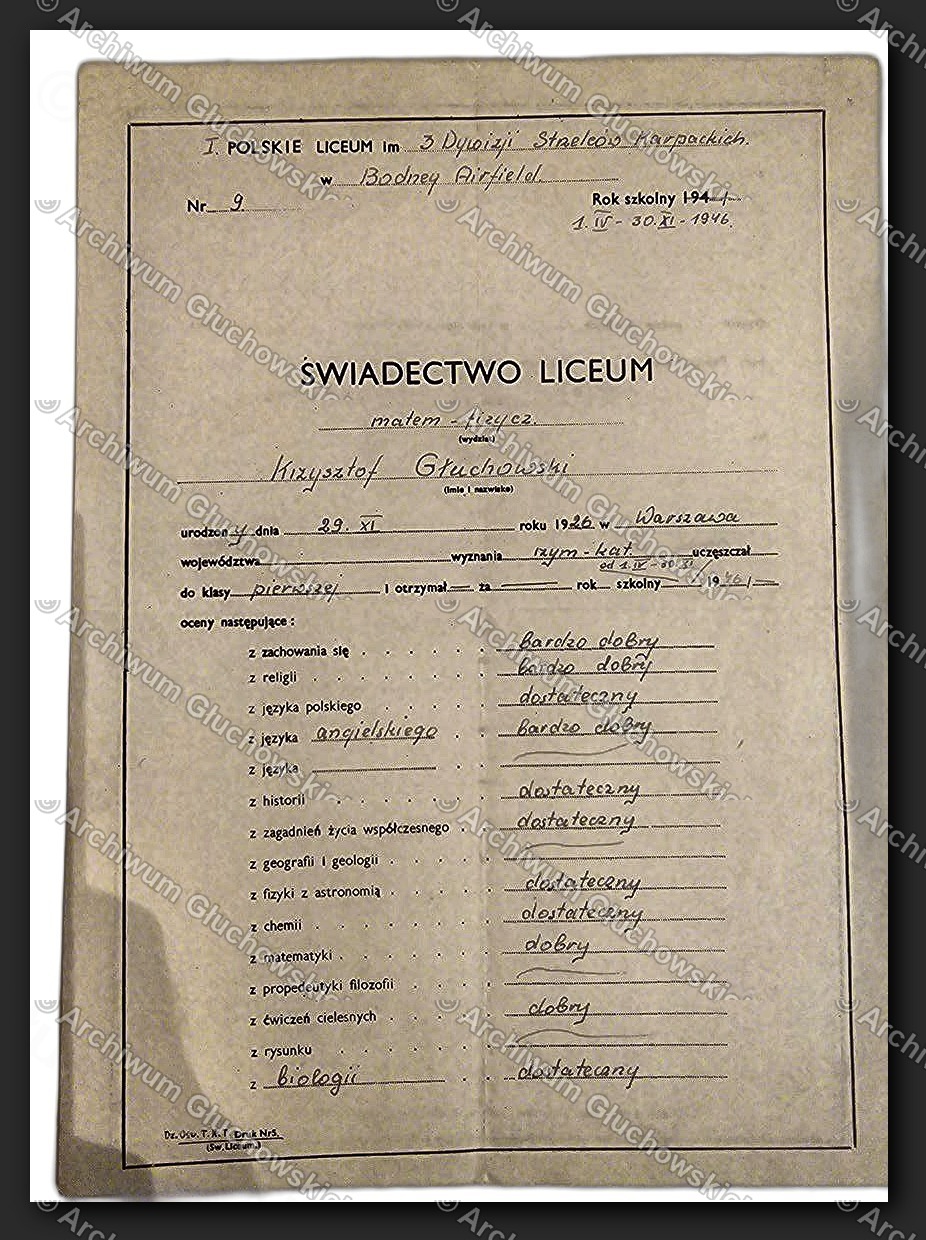 I. POLSKIE LICEUM im 3 Dywizji Strzelców Karpackich.
w Bodney Airfield
Nr. 9. Rok szkolny 194
1. IV - 30. XI - 1946.
ŚWIADECTWO LICEUM
matem - fizycz.
(wydział)
Krzysztof Głuchowski
(imię i nazwisko)
urodzony dnia 29. XI roku 1926 w Warszawa
województwa wyznania rzym - kat. uczęszczał
od 1. IV - 30. XI
do klasy pierwszej i otrzymał za rok szkolny 1946
oceny następujące :
z zachowania się bardzo dobry
z religii bardzo dobry
z języka polskiego dostateczny
z języka angielskiego bardzo dobry
z języka
z historii dostateczny
z zagadnień życia współczesnego dostateczny
z geografii i geologii
z fizyki z astronomią dostateczny
z chemii dostateczny
z matematyki dobry
z propedeutyki filozofii
z ćwiczeń cielesnych dobry
z rysunku
z biologii dostateczny
Dz. Ośw. T. K. T. Druk Nr5.
(Św. Liceum.)
© Archiwum Głuchowskich